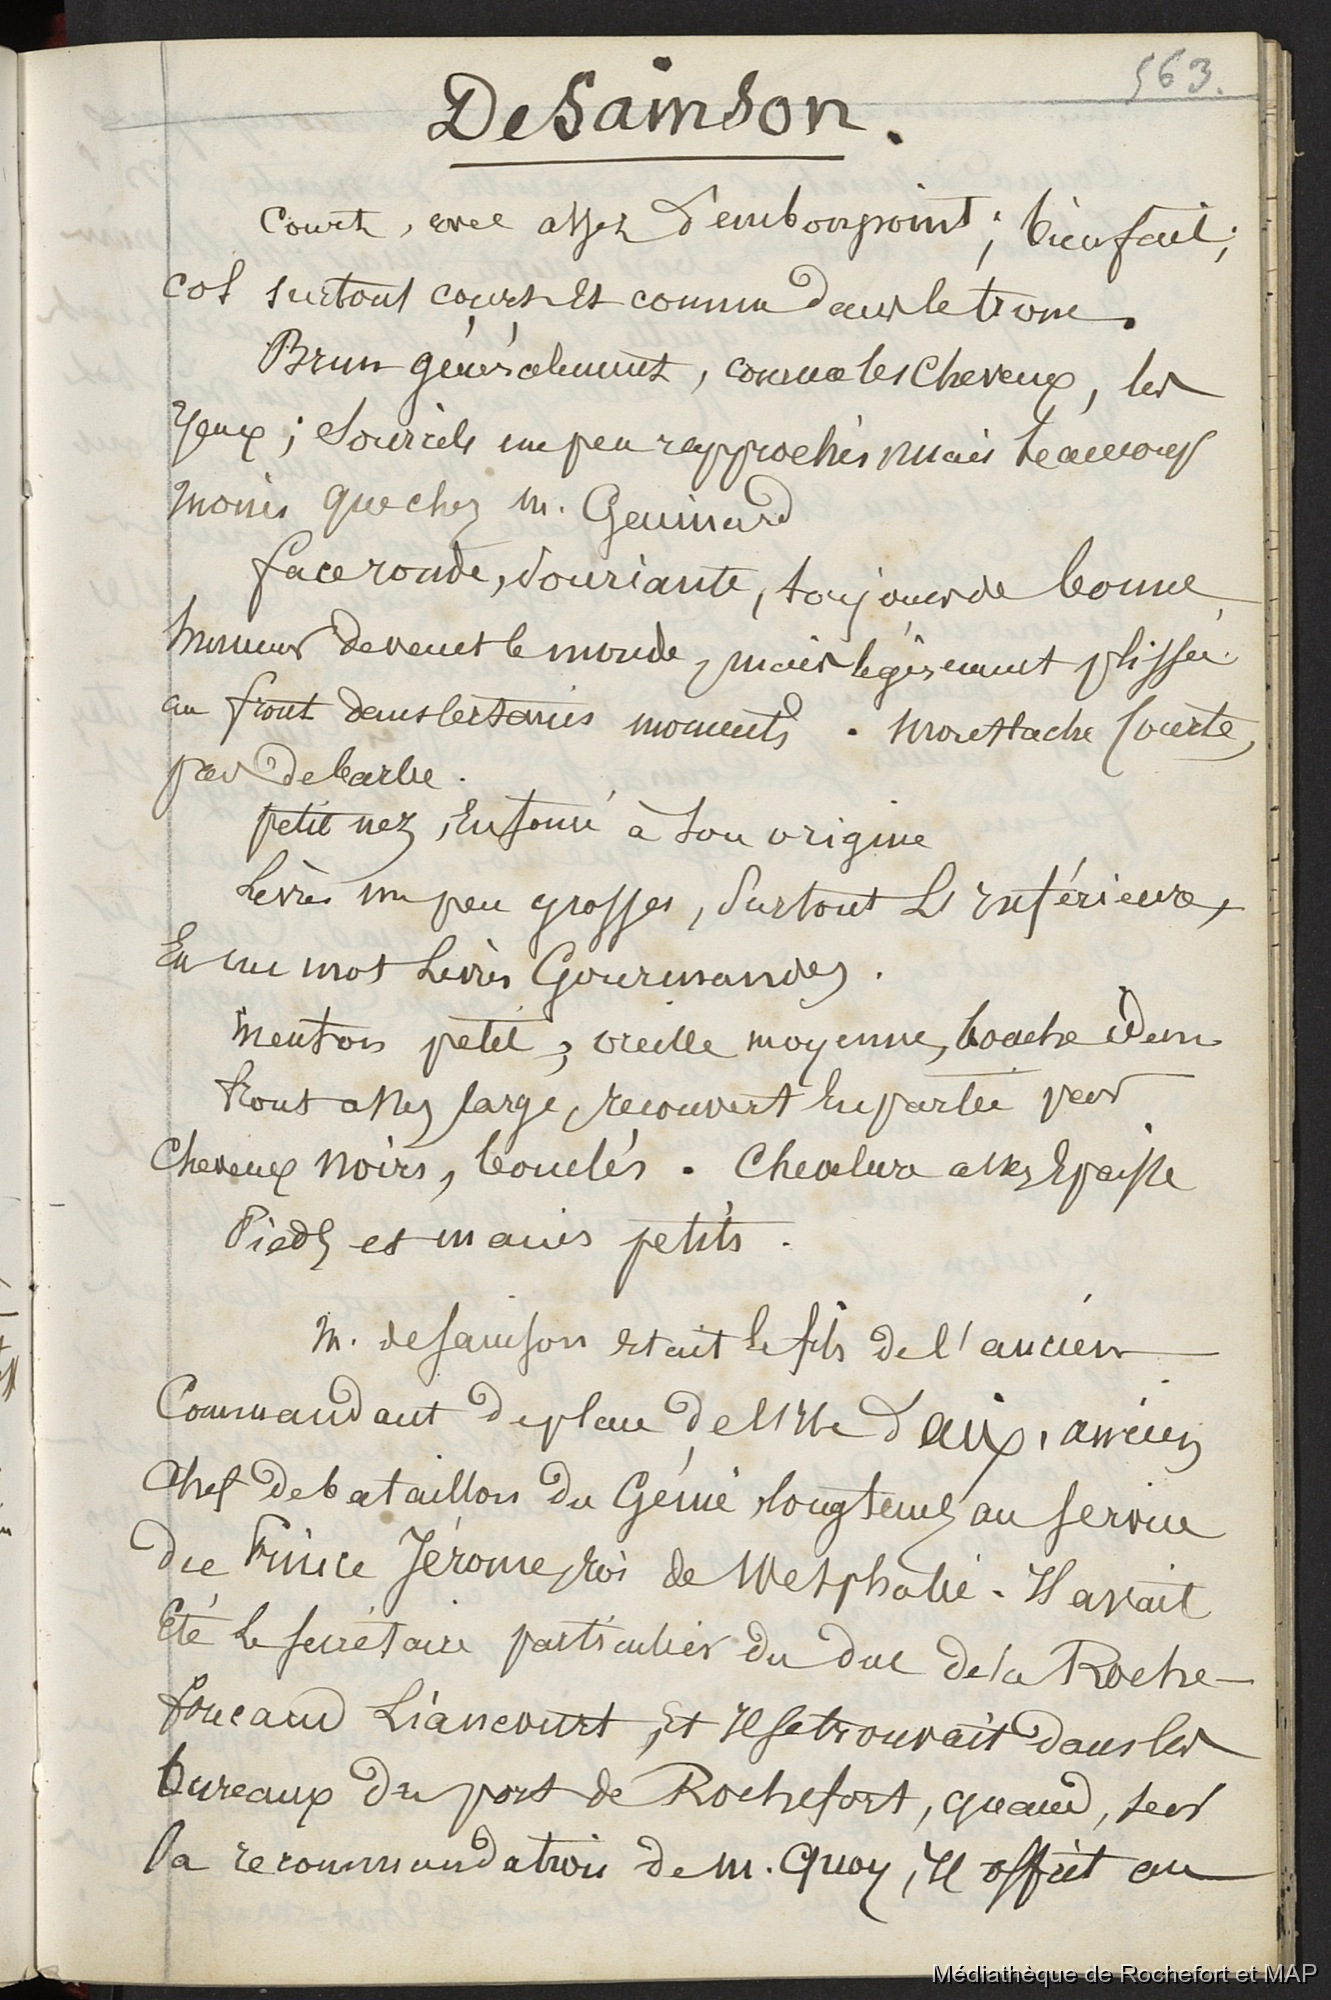 563.
DeSainson.
Court, avec assez d'embonpoint; bien fait;
col surtout court et comme dans le tronc.
Brun généralement, comme les cheveux, les
yeux; sourcils un peu rapprochés mais beaucoup
moins que chez m. Guimard
face ronde, souriante, toujours de bonne
humeur devant le monde, mais légèrement plissée
au front dans certains moments. moustache courte,
pas de barbe.
petit nez, enfoncé à son origine
Lèvres un peu grosses, surtout l'inférieure,
En un mot Lèvres Gourmandes.
menton petit, oreille moyenne, bouche idem
front assez large, recouvert en partie par
cheveux noirs, bouclés. Chevelure assez épaisse
Pieds et mains petits.
M. de Sainson était le fils de l'ancien
Commandant de place de l'Ile d'aix, ancien
chef de bataillon du Génie longtemps au service
du Prince Jérome, roi de Westphalie. Il avait
Eté le secrétaire particulier du duc de la Roche-
foucaud Liancourt, et Il se trouvait dans les
bureaux du port de Rochefort, quand, sur
la recommandation de m. Quoy, Il offrit au
Médiathèque de Rochefort et MAP